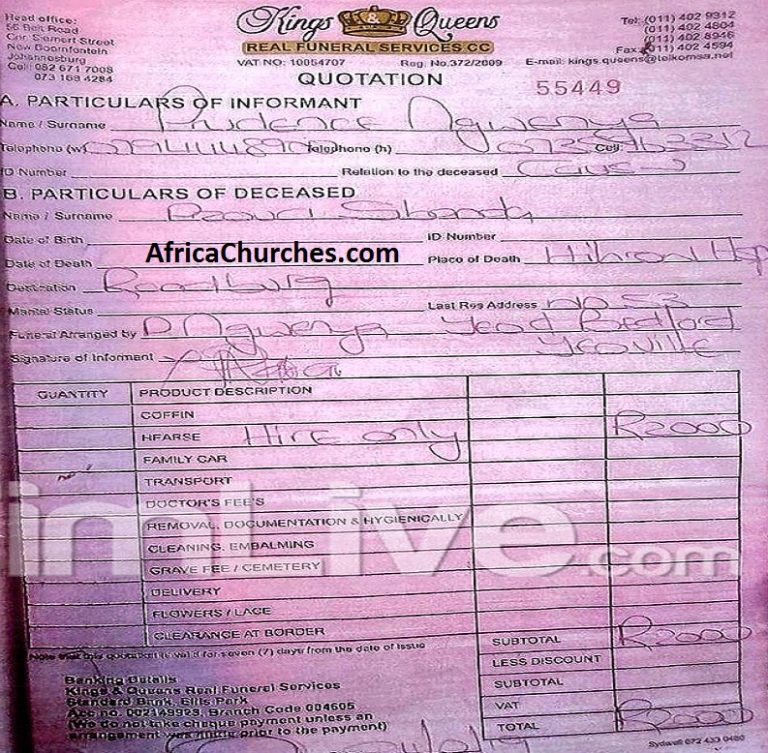 Head office:
56 Beit Road
Cnr Siemert Street
New Doornfontein
Johannesburg
Cell: 082 671 7008
073 168 4284
Kings & Queens
REAL FUNERAL SERVICES CC
VAT NO: 10054707 Reg. No.372/2009
Tel: (011) 402 9312
(011) 402 4804
(011) 402 8946
Fax: (011) 402 4594
E-mail: kings.queens@telkomsa.net
QUOTATION
55449
A. PARTICULARS OF INFORMANT
Name / Surname Prudence Ngwenya
Telephone (w) Telephone (h) Cell:
ID Number Relation to the deceased
B. PARTICULARS OF DECEASED
Name / Surname
Date of Birth ID Number
AfricaChurches.com
Date of Death Place of Death
Destination
Marital Status Last Res Address No 53
Funeral Arranged by P Ngwenya Bedford
Yeoville
Signature of Informant
QUANTITY PRODUCT DESCRIPTION
COFFIN
HEARSE Hire only R2000
FAMILY CAR
TRANSPORT
DOCTOR'S FEE'S
REMOVAL, DOCUMENTATION & HYGIENICALLY
CLEANING, EMBALMING
GRAVE FEE / CEMETERY
DELIVERY
FLOWERS / LACE
CLEARANCE AT BORDER
SUBTOTAL R2000
LESS DISCOUNT
SUBTOTAL
VAT
TOTAL R2000
Note that this quotation is valid for seven (7) days from the date of issue
Banking Details
Kings & Queens Real Funeral Services
Standard Bank, Ellis Park
Acc no. 002149929, Branch Code 004605
(We do not take cheque payment unless an
arrangement was made prior to the payment)
Sydwell 072 433 0480
.com